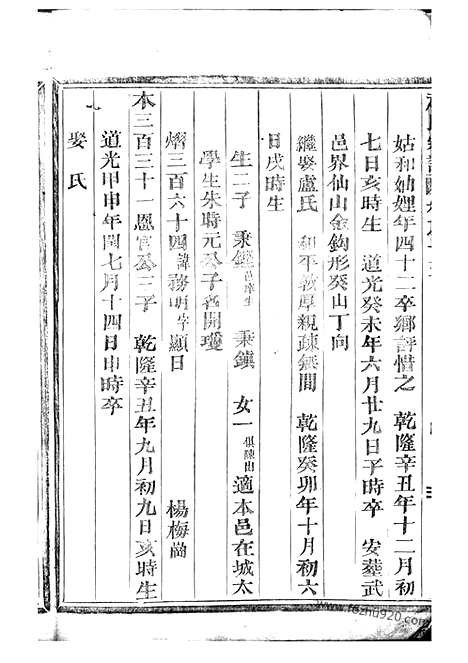 姑和妯娌年四十二卒鄉評惜之 乾隆辛丑年十二月初
七日亥時生 道光癸未年六月廿九日子時卒 安塟武
邑界仙山金鈎形癸山丁向
繼娶盧氏 和平敦厚親疎無間 乾隆癸卯年十月初六
日戌時生
生二子 秉鑑邑庠生 秉鎮 女一俱陳出適本邑在城太
學生朱時元公子名開瓊
熠三百六十四諱務明字顯日 楊梅崗
本三百三十一恩官公三子 乾隆辛丑年九月初九日亥時生
道光甲申年閏七月十四日申時卒
娶氏
www.fozhu920.com